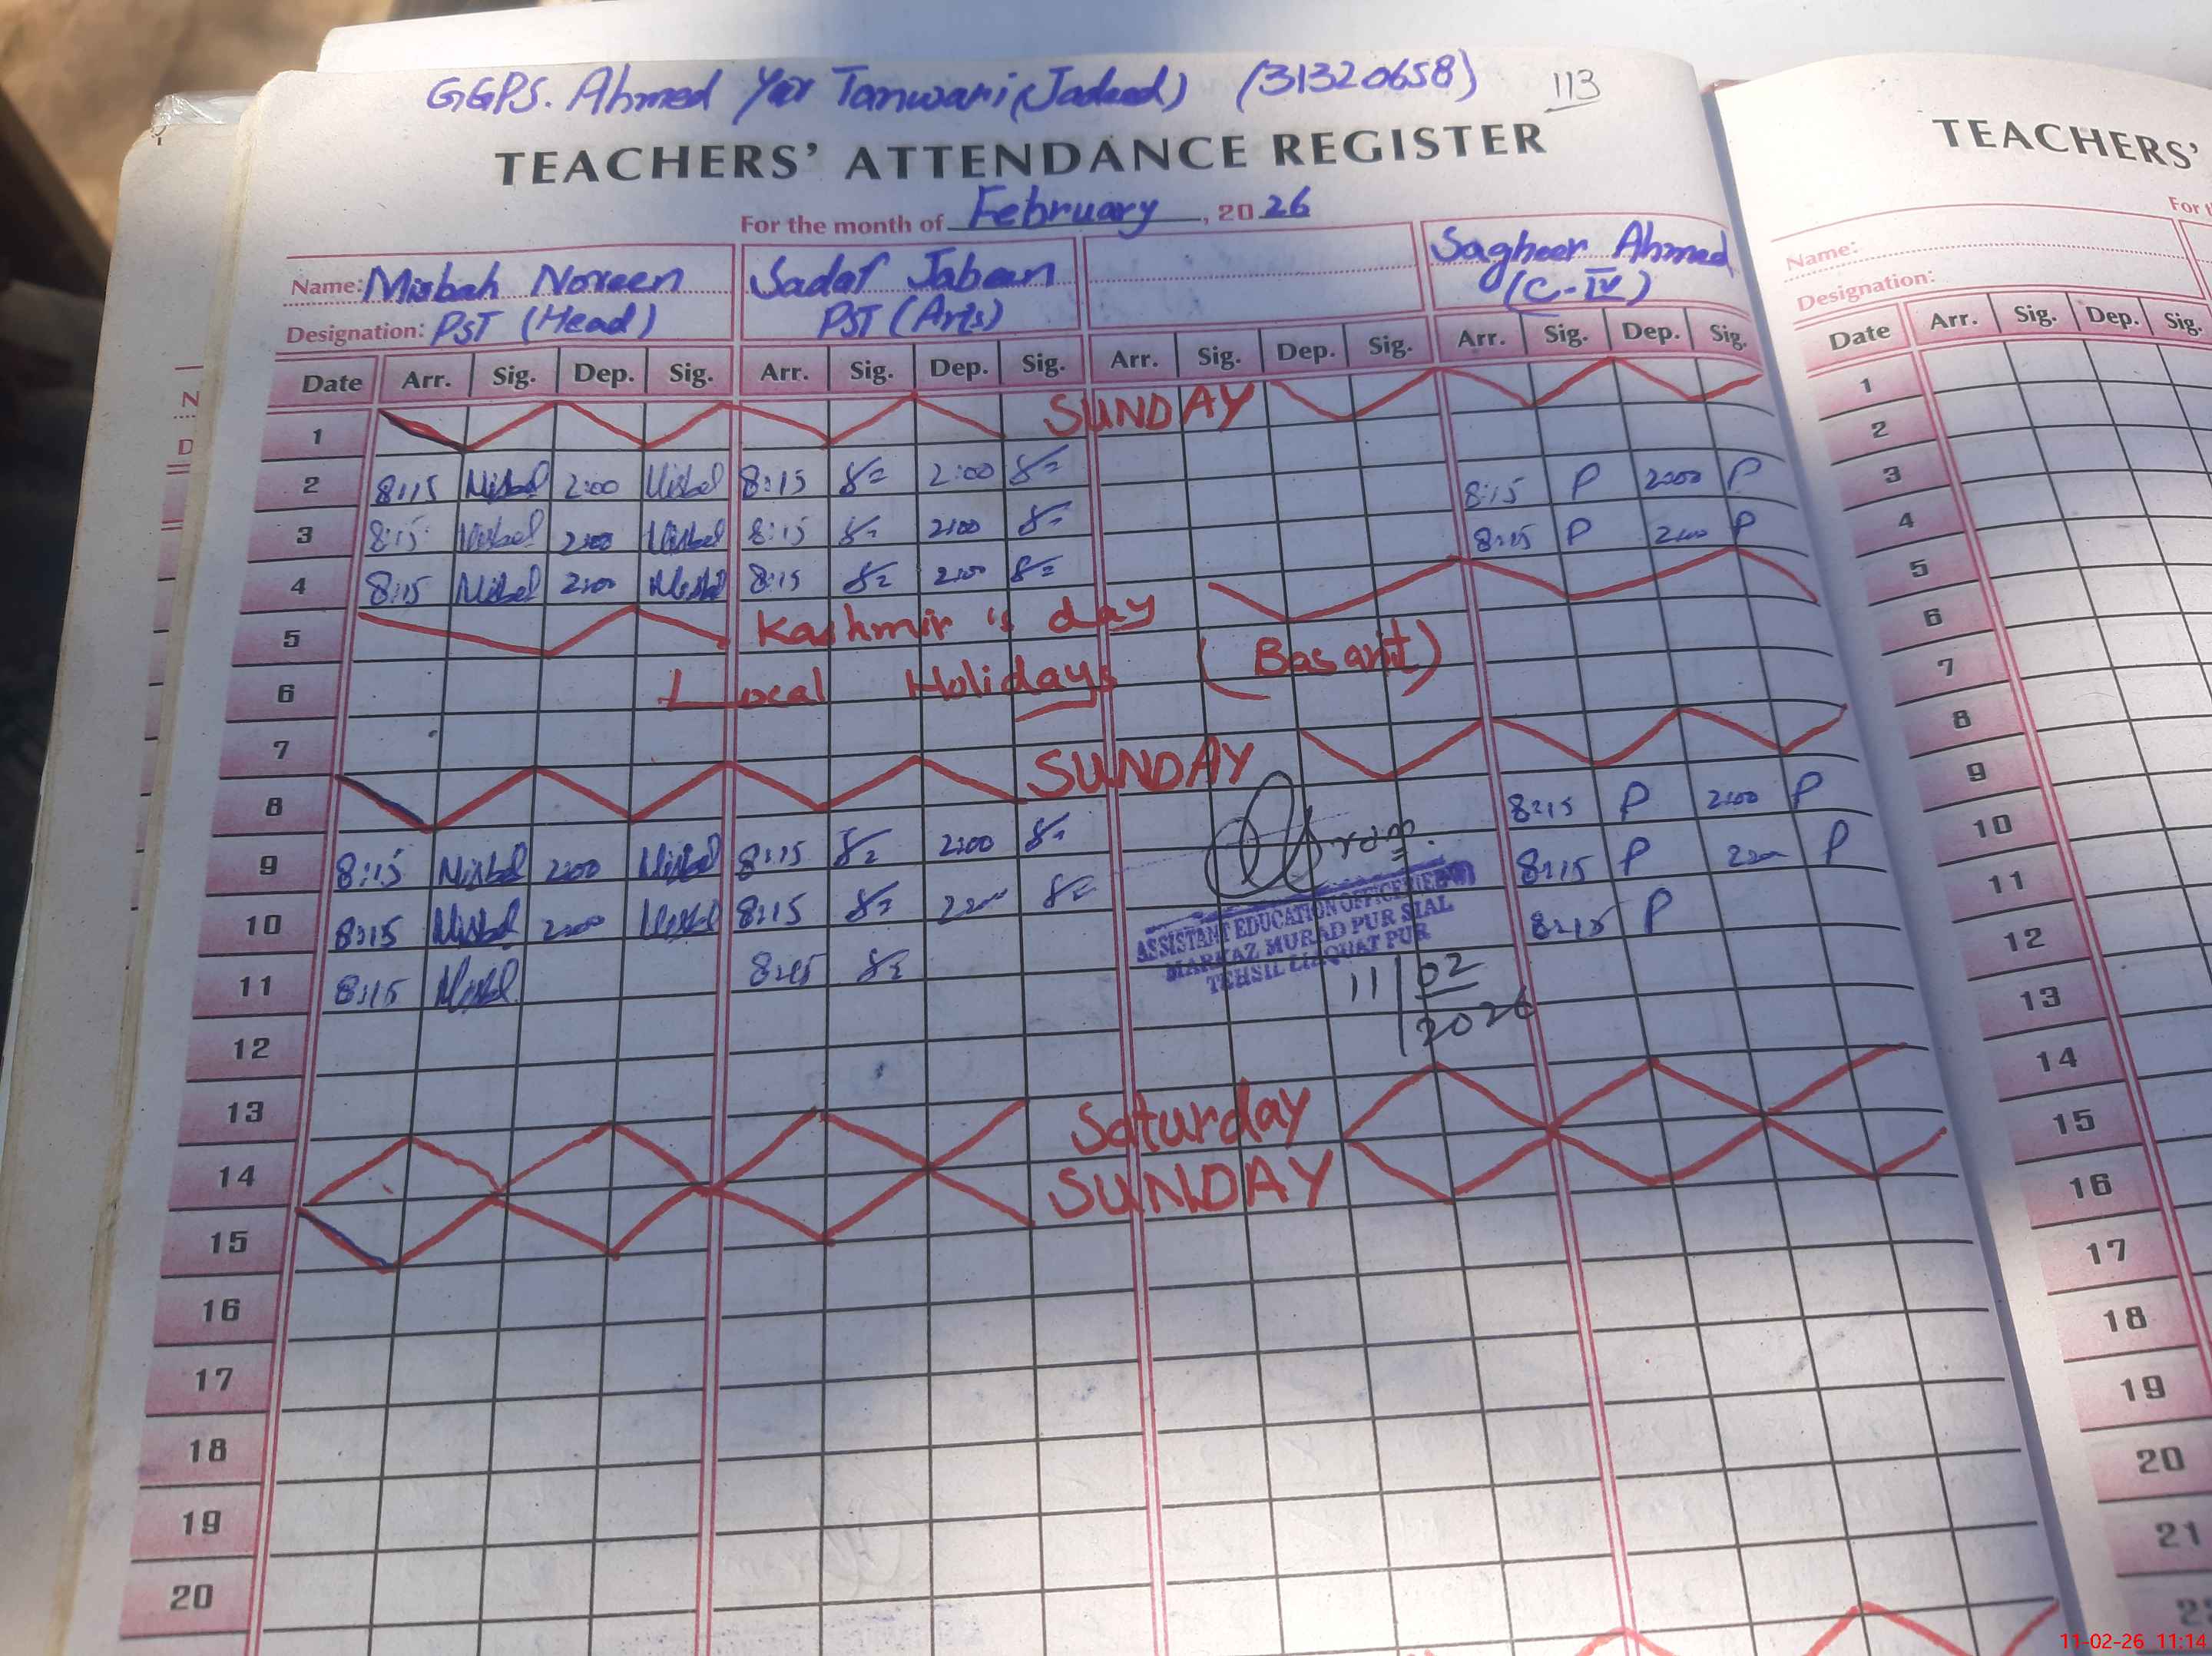 GGPS. Ahmed Yar Tanwari (Jadeed) (31320658) 113
TEACHERS' ATTENDANCE REGISTER
For the month of February, 2026
Name: Misbah Noreen Sadaf Jabeen Sagheer Ahmed
Designation: PST (Head) PST (Arts) (C-IV)
Date Arr. Sig. Dep. Sig. Arr. Sig. Dep. Sig. Arr. Sig. Dep. Sig. Arr. Sig. Dep. Sig.
1 SUNDAY
2 8:15 Misbah 2:00 Misbah 8:15 2:00 8:15 P 2:00 P
3 8:15 Misbah 2:00 Misbah 8:15 2:00 8:15 P 2:00 P
4 8:15 Misbah 2:00 Misbah 8:15 2:00
5 Kashmir's day
6 Local Holidays (Basant)
7
8 SUNDAY
9 8:15 Misbah 2:00 Misbah 8:15 2:00 8:15 P 2:00 P
10 8:15 Misbah 2:00 Misbah 8:15 2:00 8:15 P 2:00 P
11 8:15 Misbah 8:15 8:15 P
ASSISTANT EDUCATION OFFICER
MARKAZ MURAD PUR SIAL
TEHSIL LIAQUAT PUR
11/02/2026
12
13
14 Saturday
15 SUNDAY
16
17
18
19
20
TEACHERS'
For t
Name:
Designation:
Date Arr. Sig. Dep. Sig.
1
2
3
4
5
6
7
8
9
10
11
12
13
14
15
16
17
18
19
20
21
N
D
11-02-26 11:14